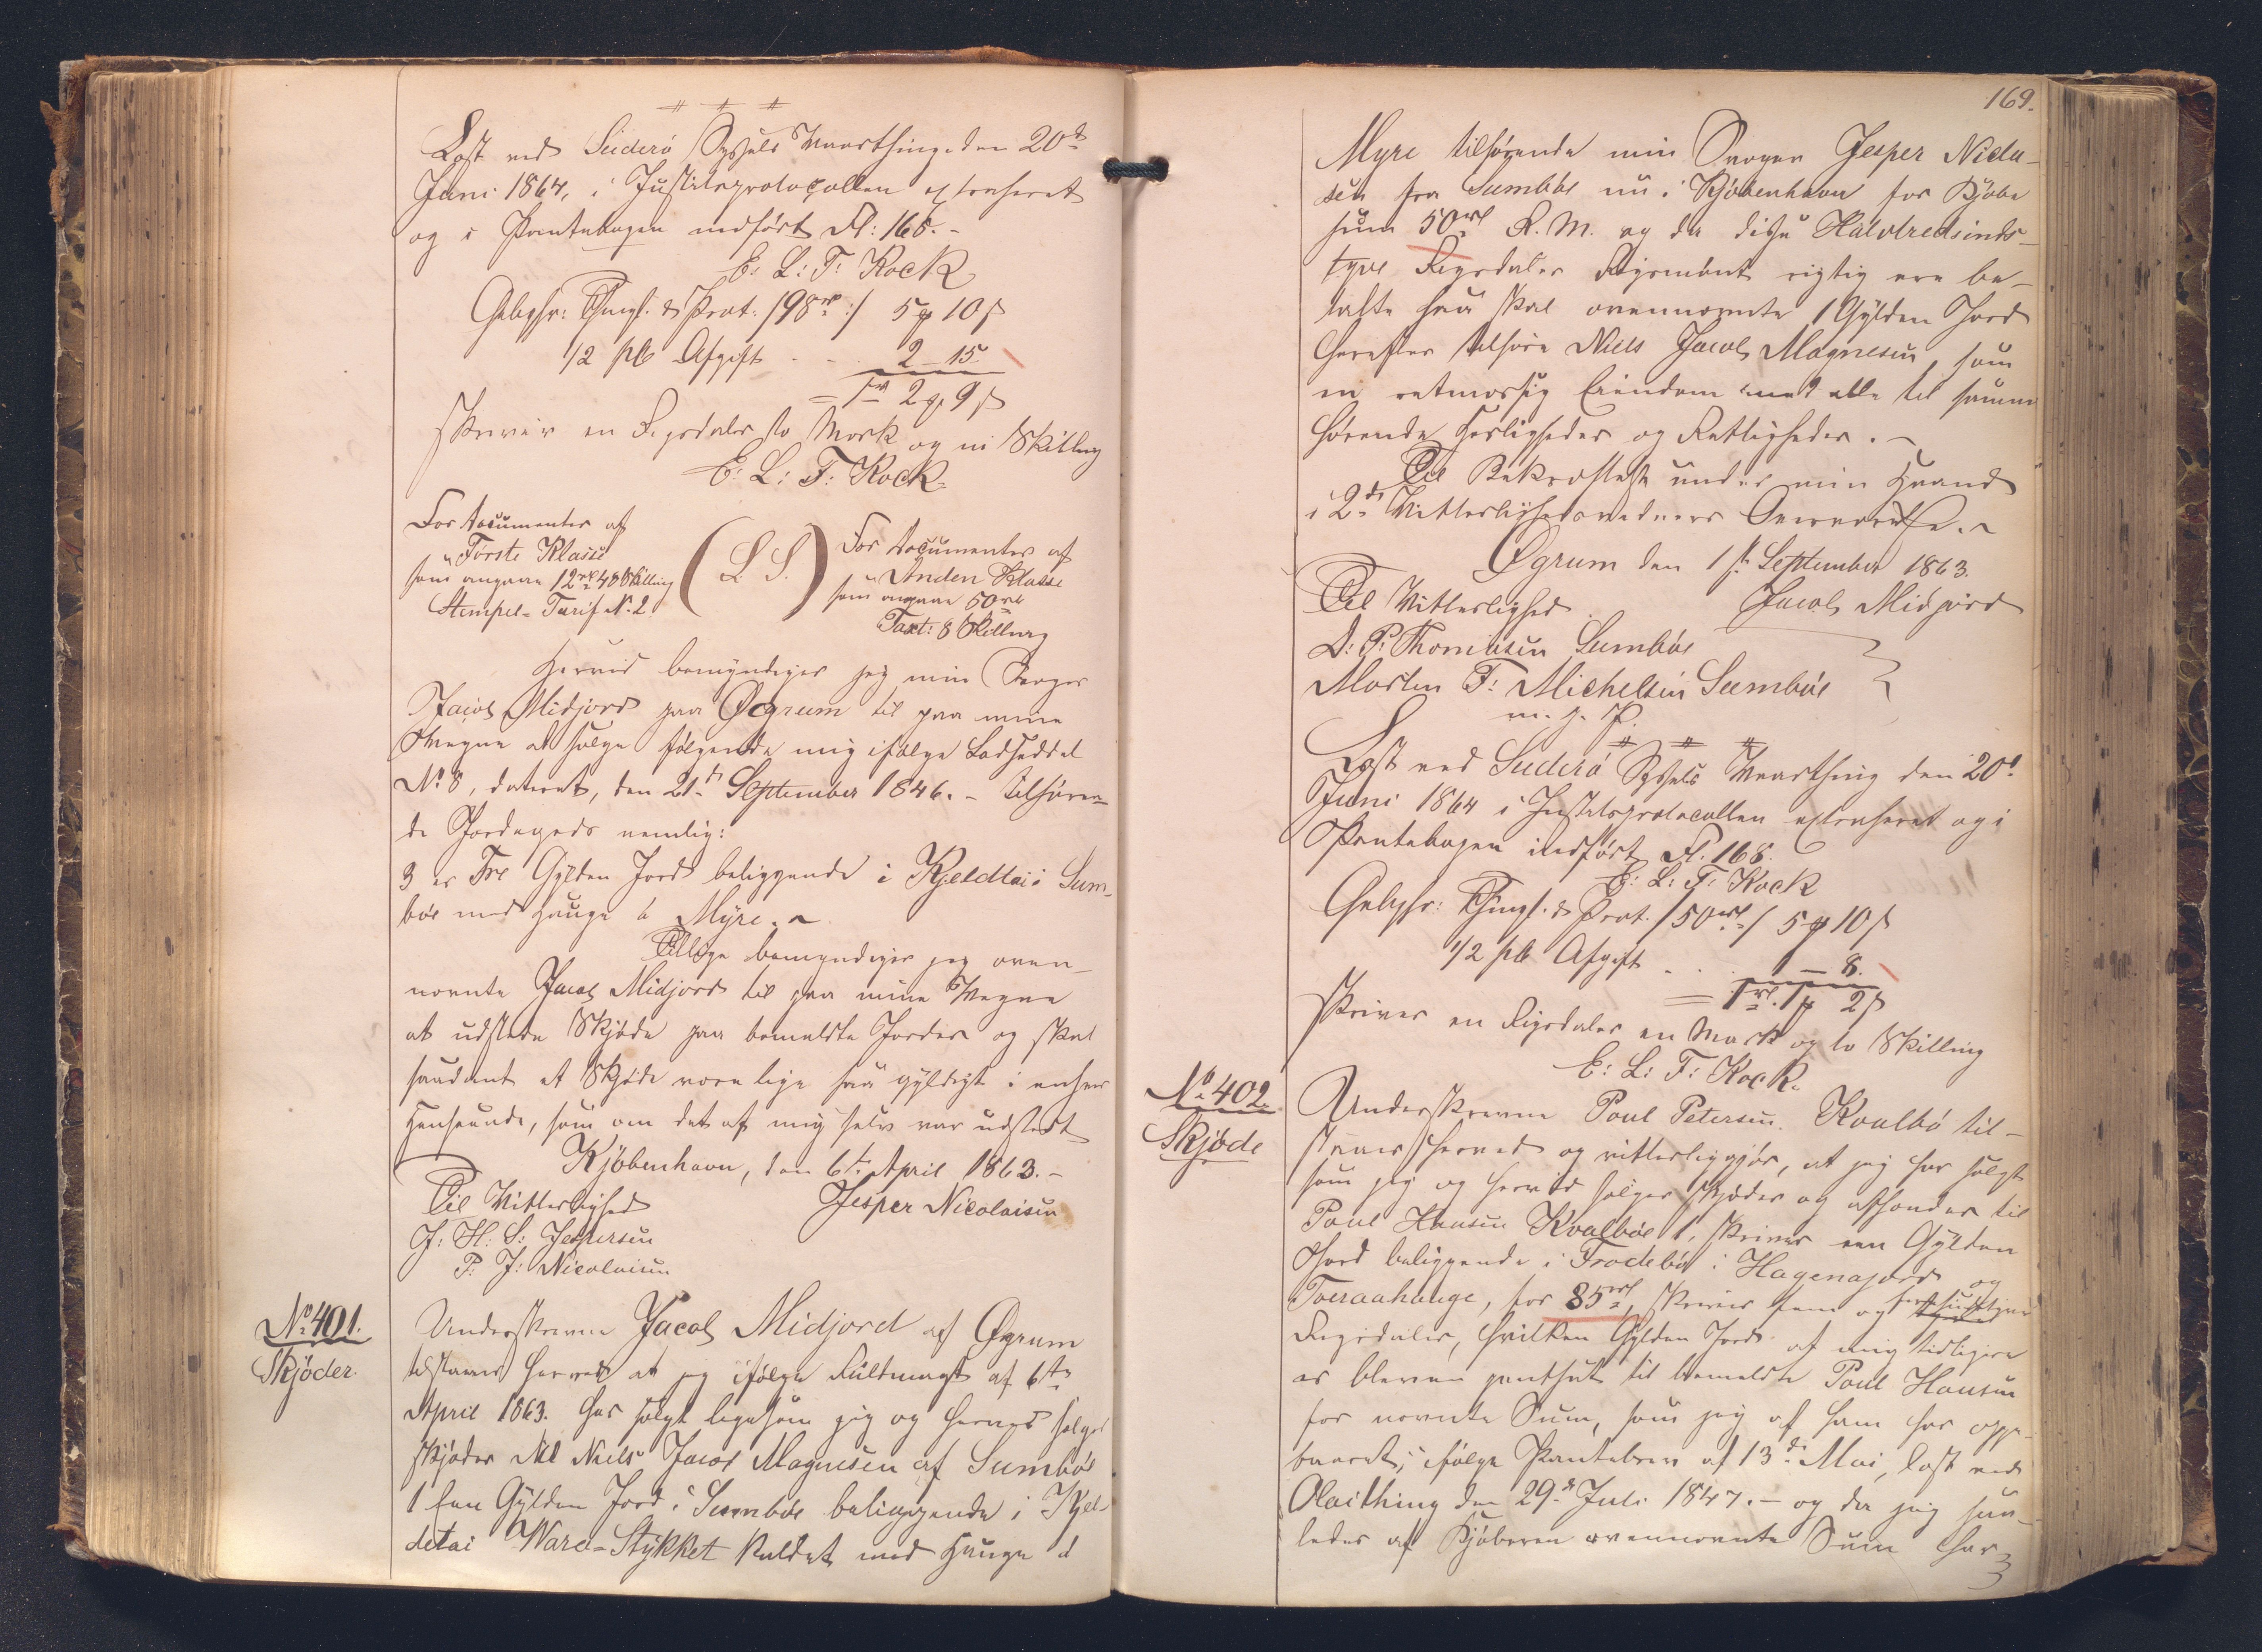 Læst ved Suderø Syssels Vaarthing den 20de
Juni 1864, i Justitsprotocollen extraheret
og i Pantebogen indført Fl: 168.-
E: L: T: Kock
Gebyhr: Thingl. & Prot. /98rd:/ 5 # 10 s
1/2 pCt Afgift . . . 2 - 15
= 1rd 2 # 9 s
skriver en Rigsdaler to Mark og ni Skilling
E: L: T: Kock
For Documenter af
Første Klasse
som angaae 12rd 48 Skilling
Stempel-Tarif No. 2.
(L. S.)
For Documenter af
Anden Klasse
som angaae 50rd
Taxt: 8 Skilling
Herved bemyndiger jeg min Svoger
Jacob Midjord paa Øgrum til paa mine
Vegne at sælge følgende mig ifølge Lodseddel
No. 8, dateret, den 21de September 1846. - tilhøren-
de Jordegods nemlig:
3 er Tre Gylden Jord beliggende i Kjeldtai i Sum-
bøe med Hauge á Myre.
Tillige bemyndiger jeg oven-
nævnte Jacob Midjord til paa mine Vegne
at udstede Skjøde paa bemeldte Jorder og skal
saadant et Skjøde være lige saa gyldigt i enhver
Henseende, som om det af mig selv var udstedt
Kjøbenhavn, den 6te April 1863.-
Til Vitterlighed Jesper Nicolaisen
J: H: S: Jespersen
P: J: Nicolaisen
No. 401.
Skjøder.
Underskrevne Jacob Midjord af Øgrum
tilstaaer herved at jeg ifølge Fuldmagt af 6te
April 1863. har solgt ligesom jeg og herved sælger
skjøder til Niels Jacob Magnesen af Sumbøe
1 Een Gylden Jord i Sumbøe beliggende i Kjel-
detai Ward-Stykket kaldet med Hauge á
169.
Myre tilhørende min Svoger Jesper Nicla-
sen fra Sumbøe nu i Kjøbenhavn for Kjøbe
sum 50rd R. M. og da disse Halvtredsinds-
tyve Rigsdaler Rigsmønt rigtig ere be-
talte saa skal ovennævnte 1 Gylden Jord
herefter tilhøre Niels Jacob Magnesen, som
en retmæssig Eiendom med alle til samme
hørende Herligheder og Rettigheder. -
Til Bekræftelse under min Haand
i 2de Vitterlighedsvidners Overværelse.
Øgrum den 1ste September 1863.
Til Vitterlighed Jacob Midjord
D: P: Thomasen Sumbøe
Morten T: Michelsen Sumbøe
m. f. P.
Læst ved Suderø Syssels Vaarthing den 20de
Juni 1864 i Justitsprotocollen extraheret og i
Pantebogen indført Fl. 168.
E: L: T: Kock
Gebyhr: Thingl. & Prot. /50rd/ 5 # 10 s
1/2 pCt Afgift . . . - 8.
= 1rd. 1 # 2 s
skriver en Rigsdaler en Mark og to Skilling
E: L: T: Kock.
No. 402.
Skjøde
Underskrevne Poul Petersen Kvalbø til-
staaer herved og vitterliggjør, at jeg har solgt
som jeg og herved sælger skjøder og afhænder til
Poul Hansen Kvalbøe 1, skriver een Gylden
Jord beliggende i Frodebø i Hagenajord og
Tveraahauge, for 85rd, skriver fem og
Rigsdaler, hvilken Gylden Jord af mig tidligere
er bleven pantsat til bemeldte Poul Hansen
for nævnte Sum, som jeg af ham har oppe-
baaret, ifølge Pantebrev af 13de Mai, læst ved
Olaithing den 29de Juli 1847. - og da jeg saa-
ledes af Kjøberen ovennævnte Sum har